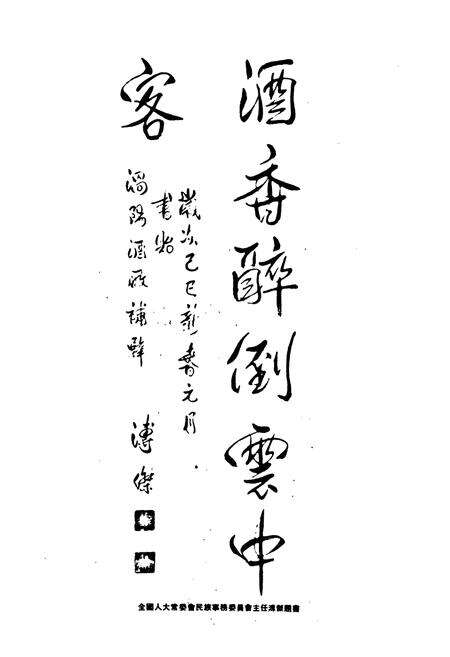 酒香醉倒雲中
客
歲次己巳新春元月
書
渦陽酒廠補壁
溥傑
全國人大常委會民族事務委員會主任溥傑題書